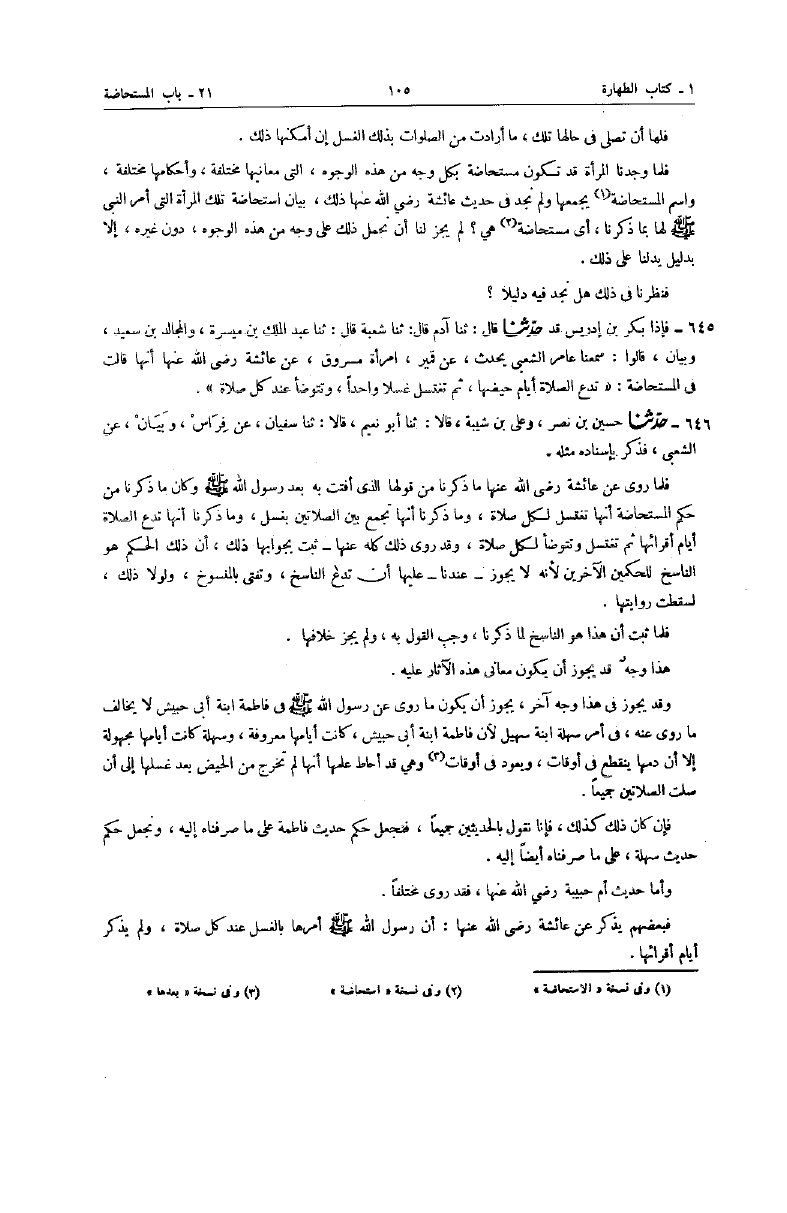 ١ ـ كتاب الطهارة ١٠٥ ٢١ ـ باب المستحاضة
فلها أن تصلى فى حالها تلك ، ما أرادت من الصلوات بذلك الغسل إن أمكنها ذلك .
فلما وجدنا المرأة قد تكون مستحاضة بكل وجه من هذه الوجوه ، التى معانيها مختلفة ، وأحكامها مختلفة ،
واسم المستحاضة(١) يجمعها ولم نجد فى حديث عائشة رضي الله عنها ذلك ، بيان استحاضة تلك المرأة التى أمر النبى
ﷺ لها بما ذكرنا ، أى مستحاضة(٢) هي ؟ لم يجز لنا أن نحمل ذلك على وجه من هذه الوجوه ، دون غيره ، إلا
بدليل يدلنا على ذلك .
فنظرنا فى ذلك هل نجد فيه دليلا ؟
٦٤٥ ـ فإذا بكر بن إدريس قد حدثنا قال : ثنا آدم قال: ثنا شعبة قال : ثنا عبد الملك بن ميسرة ، والمجالد بن سعيد ،
وبيان ، قالوا : سمعنا عامر الشعبي يحدث ، عن قمير ، امرأة مسروق ، عن عائشة رضى الله عنها أنها قالت
فى المستحاضة : « تدع الصلاة أيام حيضها ، ثم تغتسل غسلا واحداً ، وتتوضأ عند كل صلاة » .
٦٤٦ ـ حدثنا حسين بن نصر ، وعلى بن شيبة ، قالا : ثنا أبو نعيم ، قالا : ثنا سفيان ، عن فِرَاسْ ، وَبَيَانْ ، عن
الشعبي ، فذكر بإسناده مثله .
فلما روى عن عائشة رضى الله عنها ما ذكرنا من قولها الذى أفتت به بعد رسول الله ﷺ وكان ما ذكرنا من
حكم المستحاضة أنها تغتسل لكل صلاة ، وما ذكرنا أنها تجمع بين الصلاتين بغسل ، وما ذكرنا أنها تدع الصلاة
أيام أقرائها ثم تغتسل وتتوضأ لكل صلاة ، وقد روى ذلك كله عنها ـ ثبت بجوابها ذلك ، أن ذلك الحكم هو
الناسخ للحكمين الآخرين لأنه لا يجوز ـ عندنا ـ عليها أن تدع الناسخ ، وتفتى بالمنسوخ ، ولولا ذلك ،
لسقطت روايتها .
فلما ثبت أن هذا هو الناسخ لما ذكرنا ، وجب القول به ، ولم يجز خلافها .
هذا وجهٌ قد يجوز أن يكون معانى هذه الآثار عليه .
وقد يجوز فى هذا وجه آخر ، يجوز أن يكون ما روى عن رسول الله ﷺ فى فاطمة ابنة أبى حبيش لا يخالف
ما روى عنه ، فى أمر سهلة ابنة سهيل لأن فاطمة ابنة أبى حبيش ، كانت أيامها معروفة ، وسهلة كانت أيامها مجهولة
إلا أن دمها ينقطع فى أوقات ، ويعود فى أوقات(٣) وهي قد أحاط علمها أنها لم تخرج من الحيض بعد غسلها إلى أن
صلت الصلاتين جميعاً .
فإن كان ذلك كذلك ، فإنا نقول بالحديثين جميعاً ، فنجعل حكم حديث فاطمة على ما صرفناه إليه ، ونجعل حكم
حديث سهلة ، على ما صرفناه أيضاً إليه .
وأما حديث أم حبيبة رضي الله عنها ، فقد روى مختلفاً .
فبعضهم يذكر عن عائشة رضى الله عنها : أن رسول الله ﷺ أمرها بالغسل عند كل صلاة ، ولم يذكر
أيام أقرائها .
(١) وفى نسخة « الاستحاضة » (٢) وفى نسخة « استحاضة » (٣) وفى نسخة « بعدها »